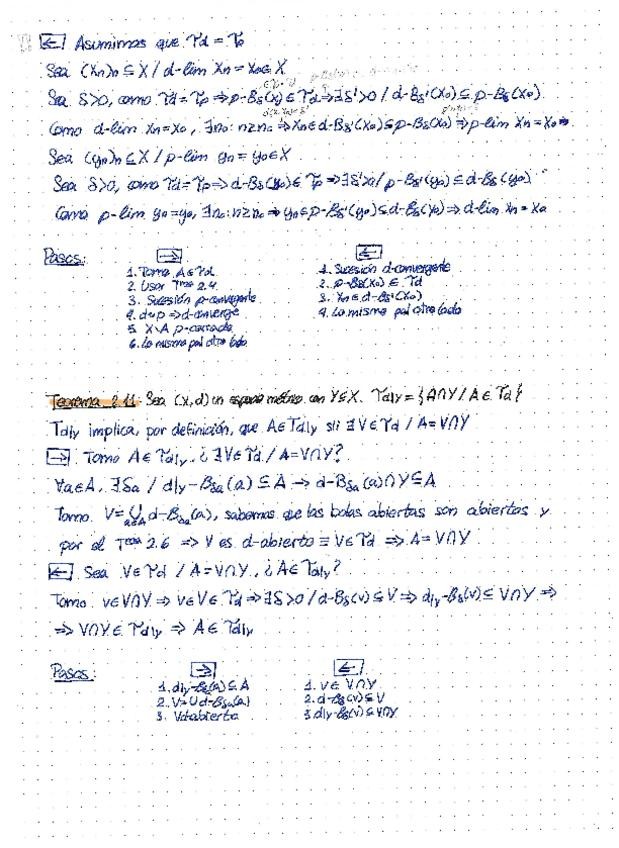 ⇐ Asumimos que τd = τρ
Sea (xn)n ⊆ X / d-lim xn = x0 ∈ X
Sea δ>0, como τd = τρ ⇒ ρ-Bδ(x0) ∈ τd ⇒ ∃δ'>0 / d-Bδ'(x0) ⊆ ρ-Bδ(x0)
Como d-lim xn = x0, ∃n0: n≥n0 ⇒ xn ∈ d-Bδ'(x0) ⊆ ρ-Bδ(x0) ⇒ ρ-lim xn = x0
Sea (yn)n ⊆ X / ρ-lim yn = y0 ∈ X
Sea δ>0, como τd = τρ ⇒ d-Bδ(y0) ∈ τρ ⇒ ∃δ'>0 / ρ-Bδ'(y0) ⊆ d-Bδ(y0)
Como ρ-lim yn = y0, ∃n0: n≥n0 ⇒ yn ∈ ρ-Bδ'(y0) ⊆ d-Bδ(y0) ⇒ d-lim xn = x0
Pasos:
⇒
1. Tomo A ∈ τd
2. Usar Tma 2.4
3. Sucesión ρ-convergente
4. d~ρ ⇒ d-converge
5. X\A ρ-cerrado
6. Lo mismo pal otro lado
⇐
1. Sucesión d-convergente
2. ρ-Bδ(x0) ∈ τd
3. xn ∈ d-Bδ'(x0)
4. Lo mismo pal otro lado
Teorema 2.11: Sea (X,d) un espacio métrico con Y⊆X. τd|Y = {A∩Y / A ∈ τd}
τd|Y implica, por definición, que A ∈ τd|Y sii ∃V ∈ τd / A = V∩Y
⇒ Tomo A ∈ τd|Y. ¿∃V ∈ τd / A = V∩Y?
∀a∈A, ∃δa / d|Y-Bδa(a) ⊆ A → d-Bδa(a) ∩ Y ⊆ A
Tomo V = ∪a∈A d-Bδa(a), sabemos que las bolas abiertas son abiertos y
por el Tma 2.6 ⇒ V es d-abierto ≡ V ∈ τd ⇒ A = V∩Y
⇐ Sea V ∈ τd / A = V∩Y, ¿A ∈ τd|Y?
Tomo v ∈ V∩Y ⇒ v ∈ V ∈ τd ⇒ ∃δ>0 / d-Bδ(v) ⊆ V ⇒ d|Y-Bδ(v) ⊆ V∩Y ⇒
⇒ V∩Y ∈ τd|Y ⇒ A ∈ τd|Y
Pasos:
⇒
1. d|Y-Bδ(a) ⊆ A
2. V = ∪ d-Bδa(a)
3. V d-abierto
⇐
1. v ∈ V∩Y
2. d-Bδ(v) ⊆ V
3. d|Y-Bδ(v) ⊆ V∩Y